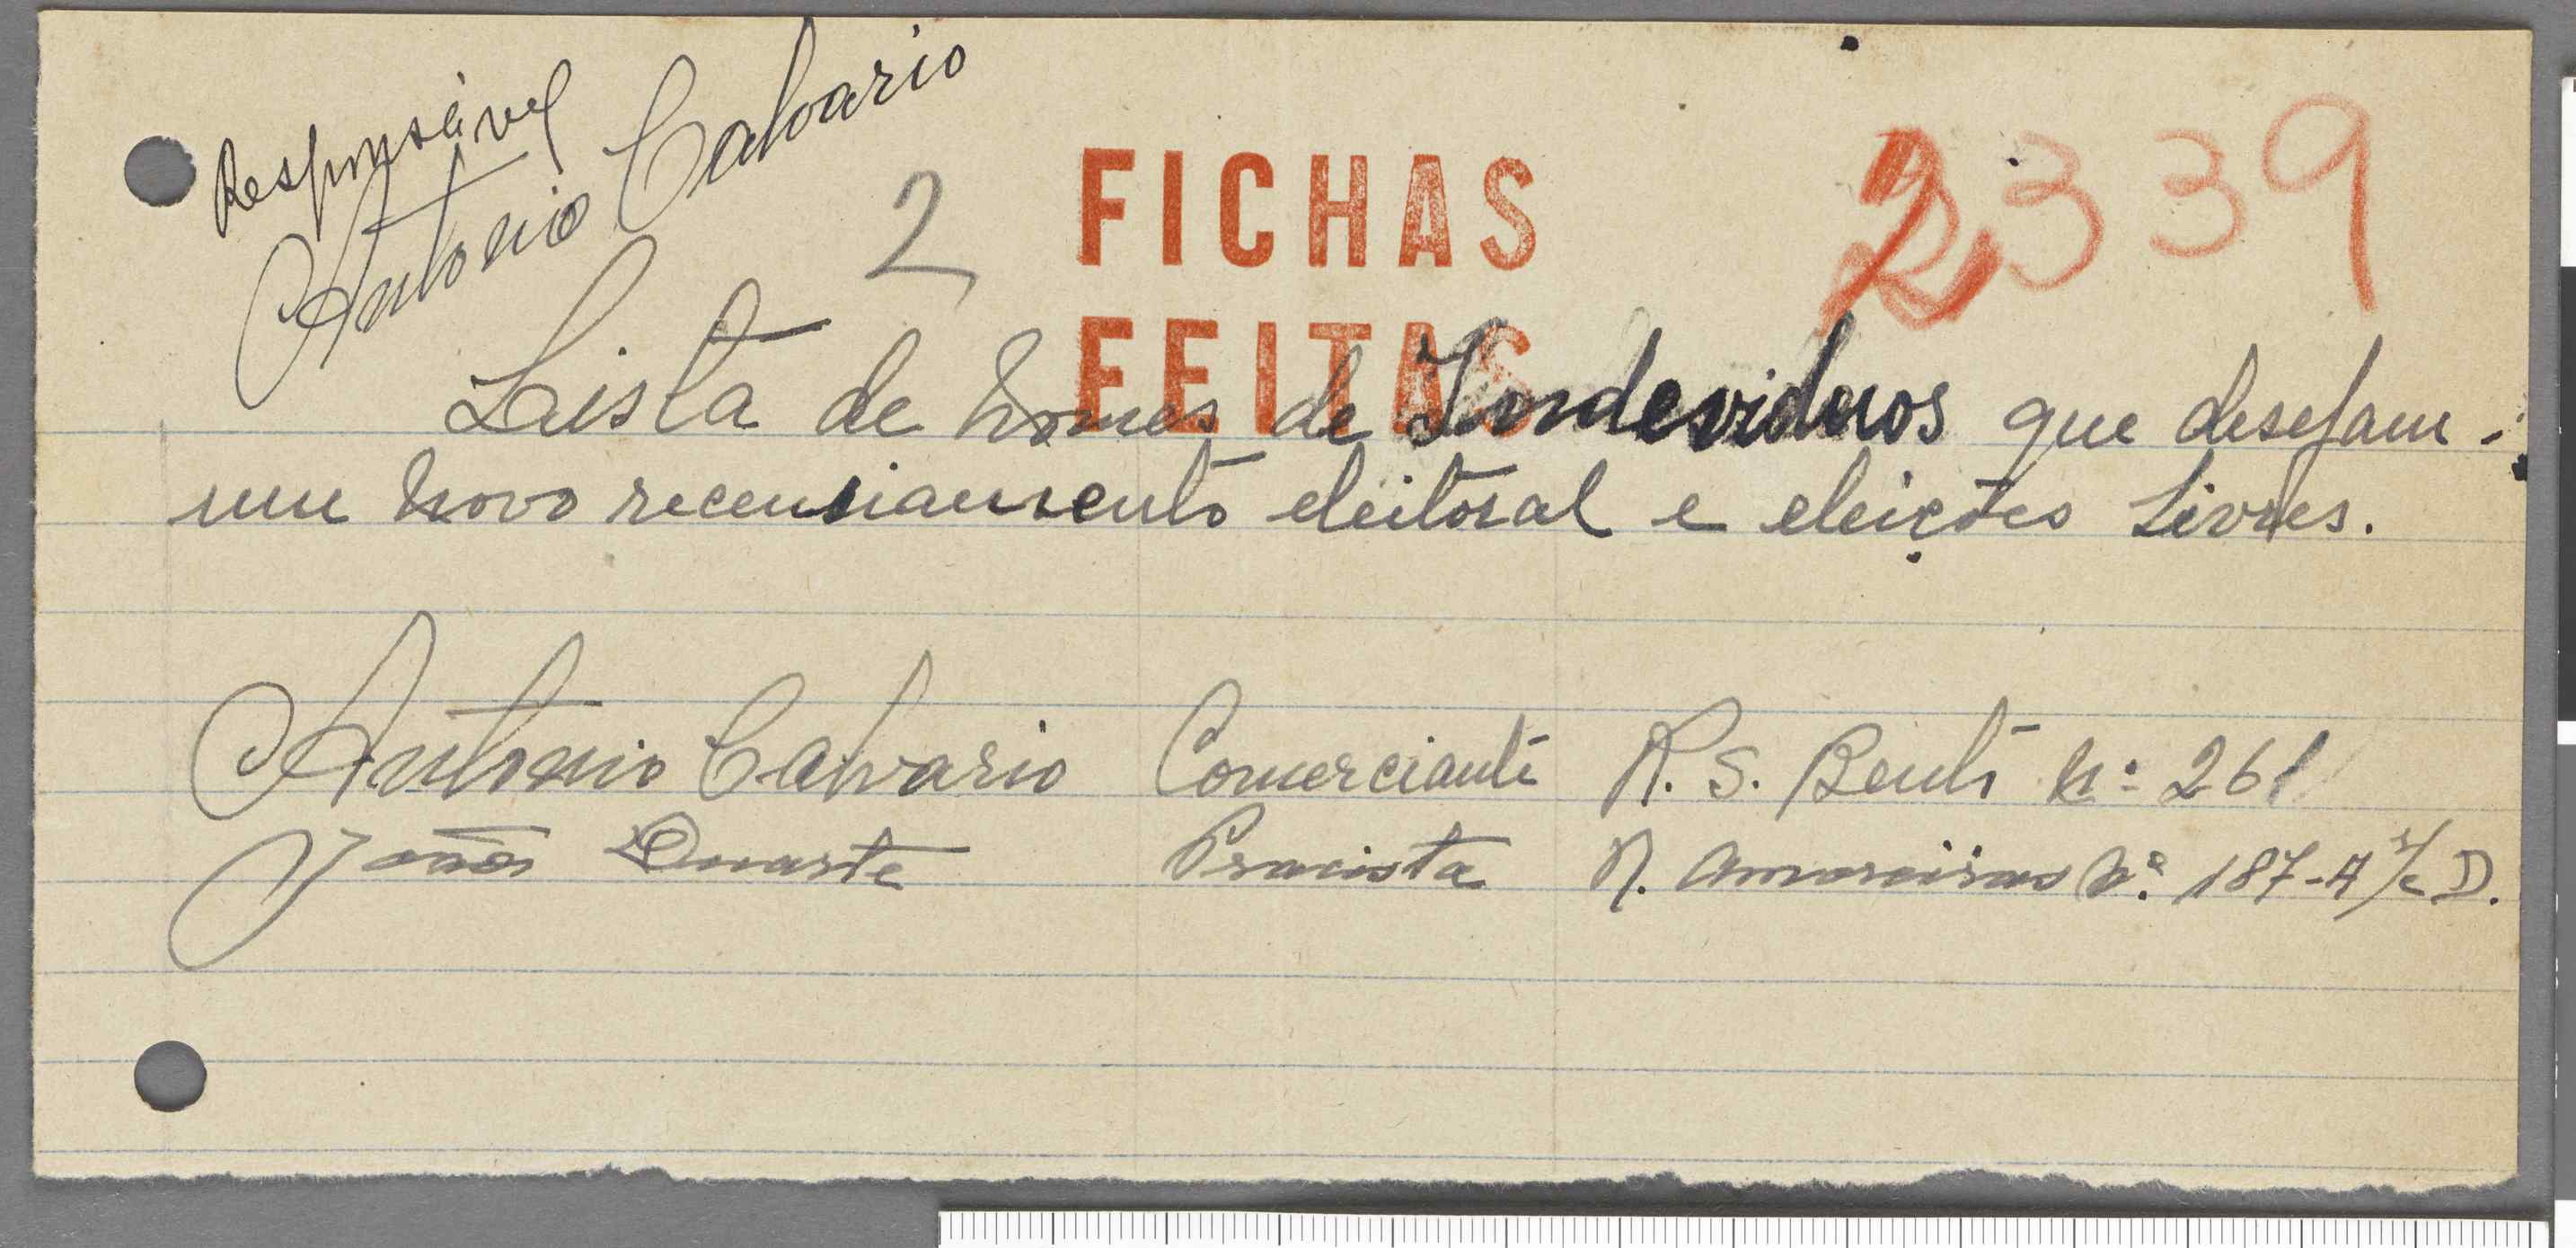 Responsável
Antonio Calvario
2
FICHAS
FEITAS
2339
Lista de Nomes de Indeviduos que desejam
um novo recensiamento eleitoral e eleições Livres.
Antonio Calvario Comerciante R. S. Bento Nº 261
João Duarte Pracista R. Amoreiras Nº 187-A r/c D.